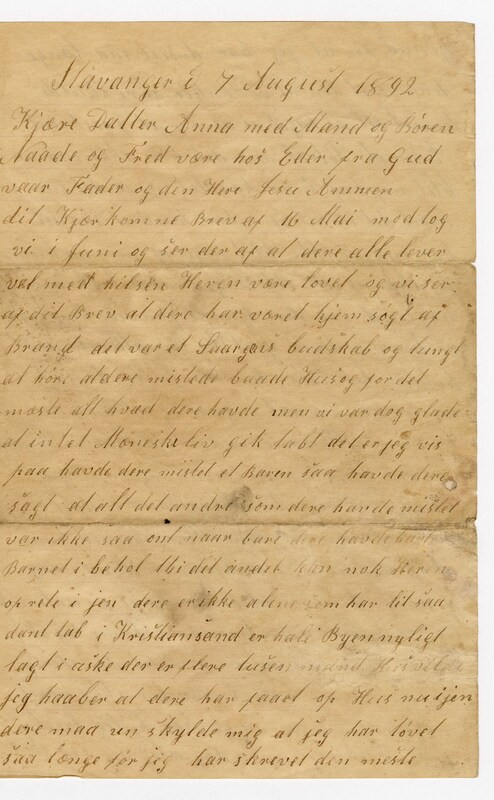 Stavanger d 7 August 1892
Kjære Datter Anna med Mand og Børen
Naade og Fred være hos Eder fra Gud
vaar Fader og den Here Jesu Ammen
dit Kjær komne Brev af 16 Mai mod tog
vi i Juni og ser der af at dere alle lever
vel med hilsen Heren være lovet og vi ser
af dit Brev at dere har været hjem søgt af
Brand det var et Saargens budskab og tungt
at høre at dere mistede baade Hus og for det
mæste alt hvad dere havde men vi var dog glade
at intet Mæneske liv gik tabt det er jeg vis
paa havde dere mistet et Baren saa havde dere
sagt at alt det andre som dere havde mistet
var ikke saa ont naar bare dere havde
Barnet i behol thi det andet kan nok Heren
op rete i jen dere er ikke alene som har lit saa
dant tab i Kristiansand er halv Byen nyligt
lagt i aske der er flere tusen mand
jeg haaber at dere har faaet op Hus nu ijen
dere maa un skylde mig at jeg har tøvet
saa længe før jeg har skrevet den meste